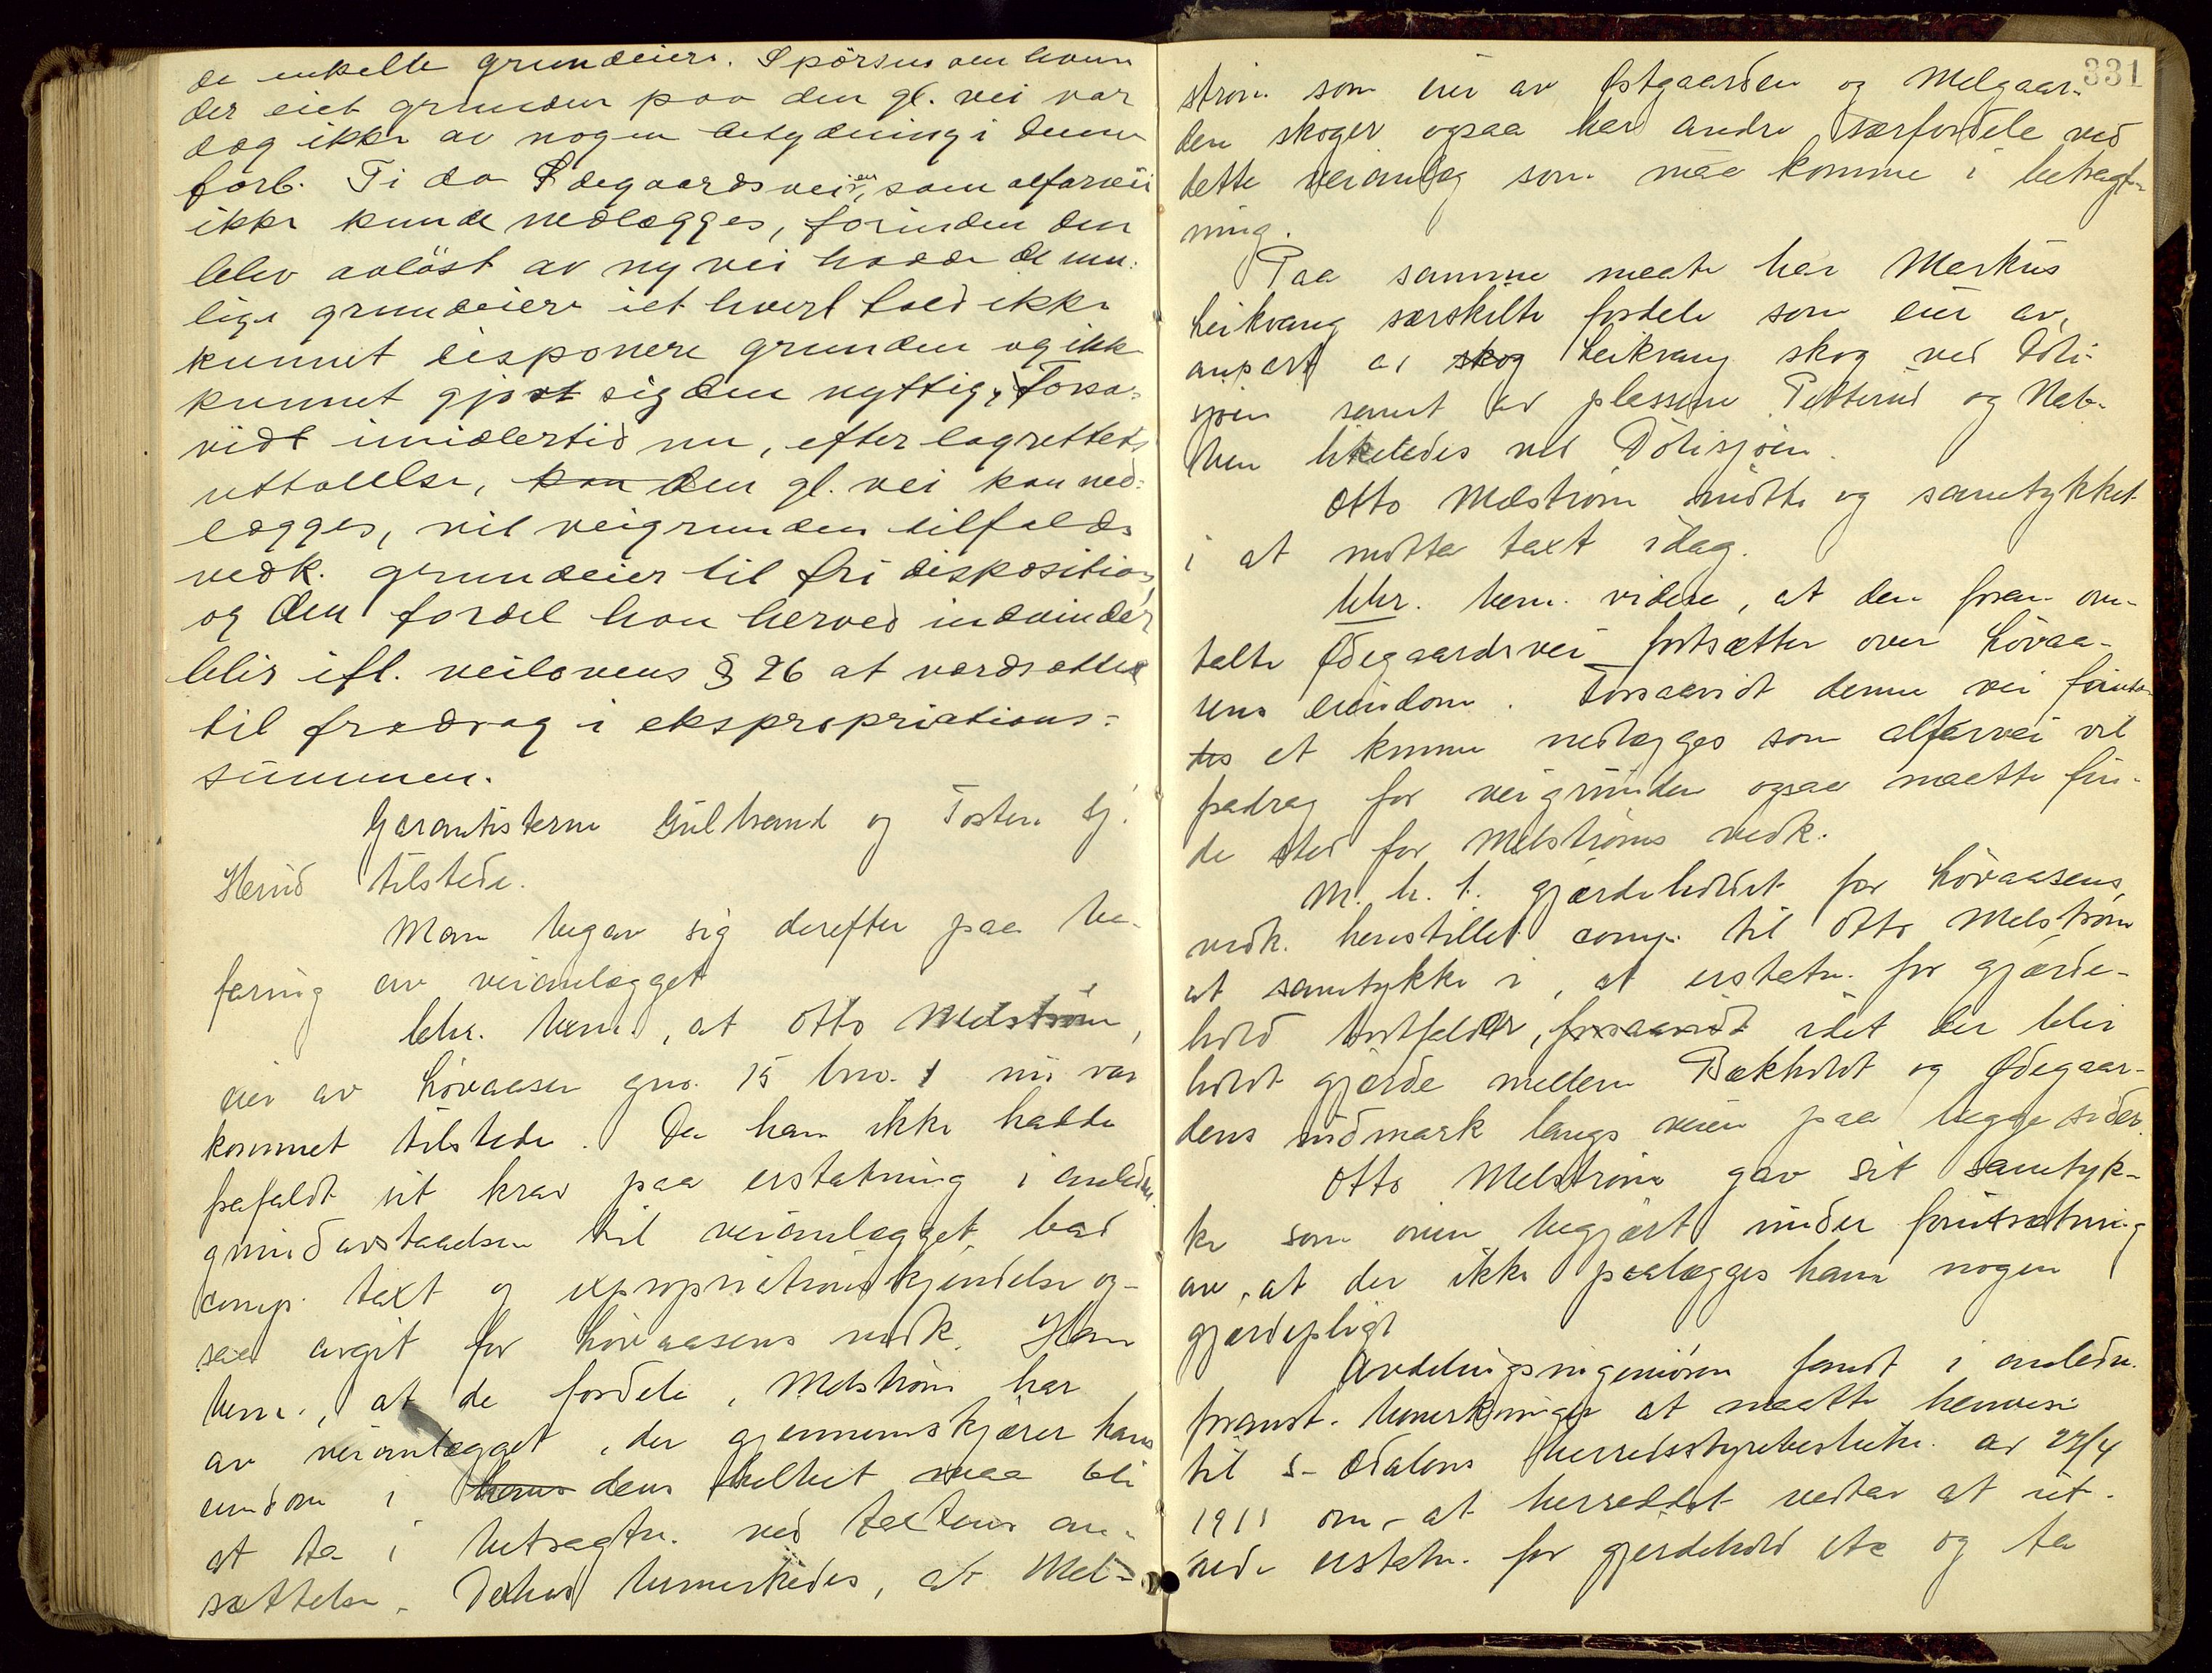 de enkelte grundeiere. Spörsm om hvem
der eiet grunden paa den gl. vei var
dog ikke av nogen betydning i denne
forb. Ti da Ödegaardsveien, som alfarvei
ikke kunde nedlægges, forinden den
blev avlöst av ny vei hadde de mu-
lige grundeiere iethvert fald ikke
kunnet disponere grunden og ikke
kunnet gjort sig den nyttig. Forsa-
vidt imidlertid nu, efter lagrettets
uttalelse, kan den gl. vei kan ned-
lægges, vil veigrunden tilfalde
vedk. grundeier til fri disposition
og den fordel han herved indvinder
blir ifl. veilovens § 26 at værdsætte
til fradrag i ekspropriations-
summen.
Garantisterne Gulbrand og Tosten Sj.
Herud tilstede.
Man begav sig derefter paa be-
faring av veianlægget
lehr. bem., at Otto Melström,
eier av Lövaasen gno. 15 bno. 1 nu var
kommet tilstede. Da han ikke hadde
frafaldt sit krav paa erstatning i anledn.
grundavstaaelsen til veianlægget, bad
comp. taxt og expropriationskjendelse og-
saa avgit for Lövaasens vedk. Han
bem., at de fordele, Melström har
av veianlægget, der gjennemskjærer hans
eiendom i hans dens helhet maa bli
at ta i betragtn. ved taxtens an-
sættelse. Derhos bemerkedes, at Mel-
331
ström som eier av Östgaarden og Melgaar-
den skoger ogsaa har andre særfordele ved
dette veianlæg som maa komme i betragt-
ning.
Paa samme maate har Markus
Leikvang særskilte fordele som eier av
anpart av skog Leikvang skog ved Döli-
sjöen samt av plassene Petterud og Nab-
ben likeledes ved Dölisjöen.
Otto Melström mötte og samtykket
i at motta taxt idag.
lehr. bem. videre, at den foran om-
talte Ödegaardsvei fortsætter over Lövaa-
sens eiendom. Forsaavidt denne vei finde-
des at kunne nedlægges som alfarvei vil
fradrag for veigrunden ogsaa maatte fin-
de sted for Melströms vedk.
M. h. t. gjærdeholdet for Lövaasens
vedk. henstillet comp. til Otto Melström
at samtykke i, at erstatn. for gjærde-
hold bortfalder, forsaavidt idet der blir
holdt gjærde mellem Bækholdt og Ödegaar-
dens indmark langs veien paa begge sider.
Otto Melström gav sit samtyk-
ke som oven begjært under forutsætning
av, at der ikke paalægges ham nogen
gjærdepligt
Avdelingsingeniören fandt i anledn.
foranst. bemerkninger at maatte henvise
til S-Odalens herredsstyrebeslutn. av 22/4
1911 om, at herredet vedtar at ut-
rede erstatn. for gjerdehold etc og ta